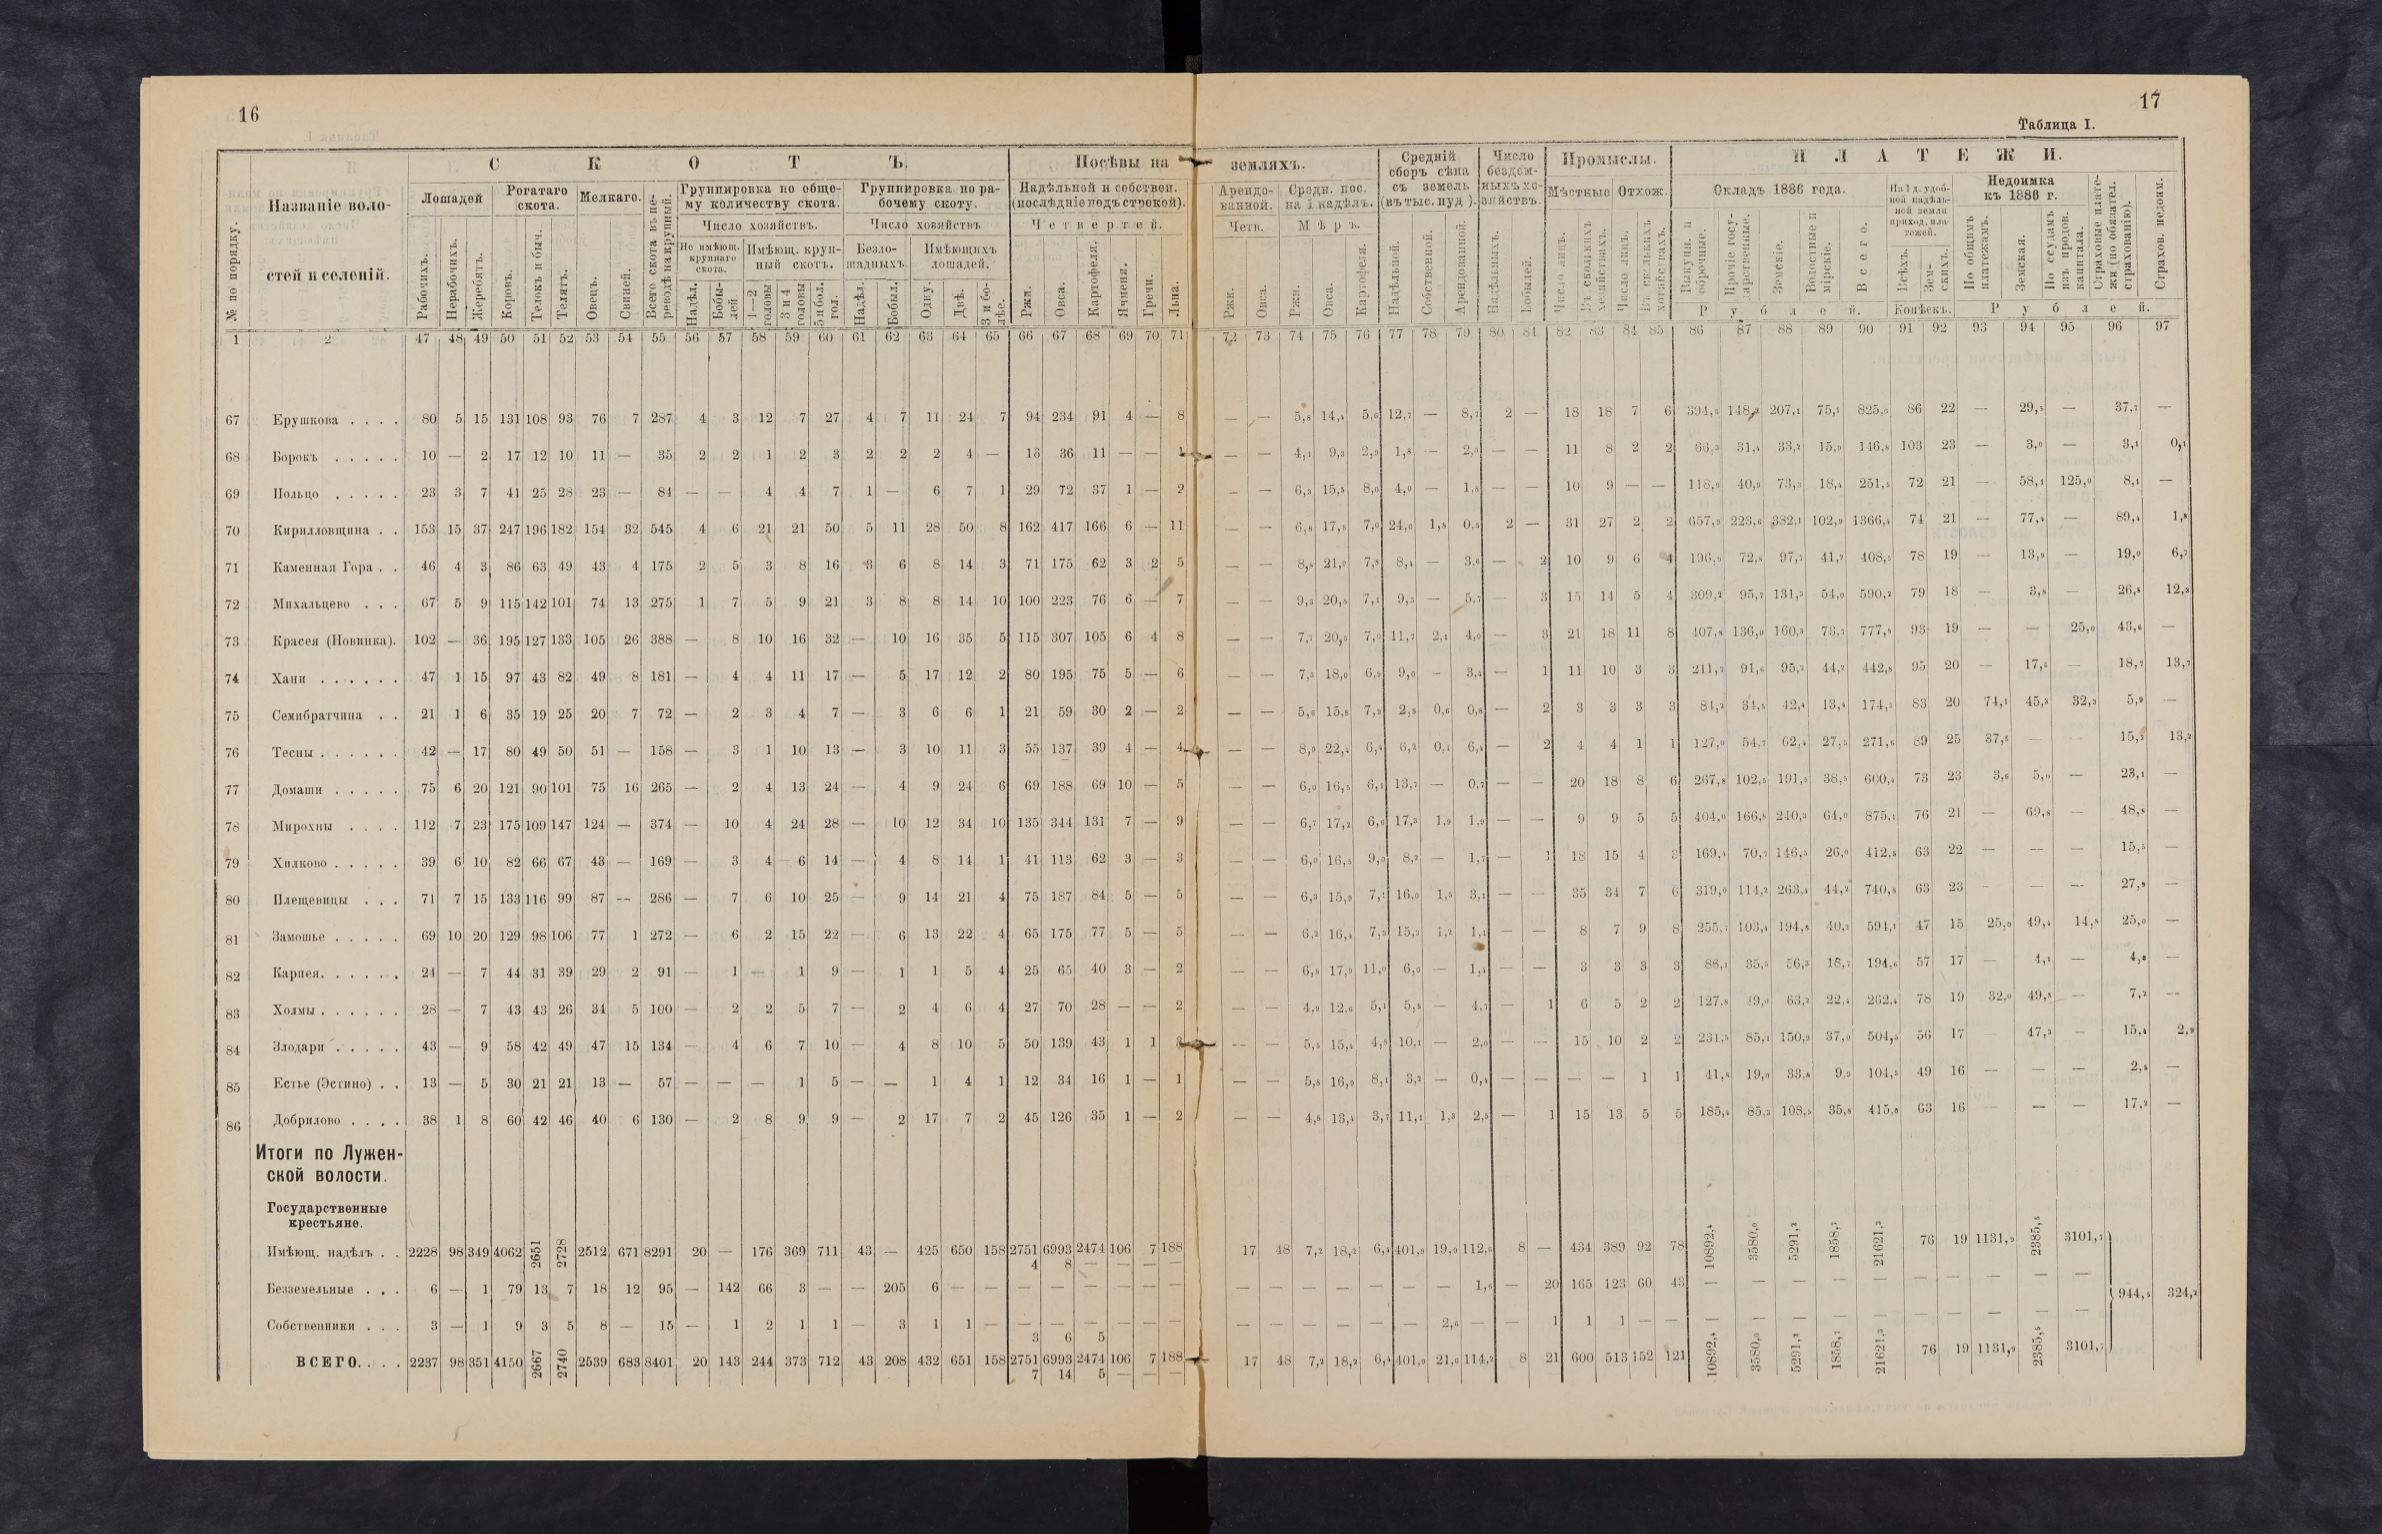 16
17
Таблица I.
№ по порядку.
Названіе волостей и селеній.
С К О Т Ъ.
Посѣвы на земляхъ.
Средній сборъ сѣна съ земель (въ тыс. пуд.).
Число бездомныхъ хозяйствъ.
Промыслы.
П Л А Т Е Ж И.
Лошадей
Рогатаго скота.
Мелкаго.
Всего скота въ переводѣ на крупный.
Группировка по общему количеству скота.
Группировка по рабочему скоту.
Надѣльной и собствен. (послѣдніе подъ строкой).
Арендованной.
Средн. пос. на 1 надѣлъ.
Мѣстные
Отхож.
Окладъ 1886 года.
На 1 д. удобной надѣльной земли приход. платежей.
Недоимка къ 1886 г.
Число хозяйствъ.
Число хозяйствъ
Четвертей.
Четв.
Мѣръ.
Не имѣющ. крупнаго скота.
Имѣющ. крупный скотъ.
Безлошадныхъ
Имѣющихъ лошадей.
Рабочихъ.
Нерабочихъ.
Жеребятъ.
Коровъ.
Телокъ и быч.
Телятъ.
Овецъ.
Свиней.
Надѣл.
Бобылей
1—2 головы
3 и 4 головы
5 и бол. гол.
Надѣл.
Бобыл.
Одну.
Двѣ.
3 и болѣе.
Ржи.
Овса.
Картофеля.
Ячменя.
Гречи.
Льна.
Ржи.
Овса.
Ржи.
Овса.
Картофеля.
Надѣльной.
Собственной.
Арендованной.
Надѣльныхъ.
Бобылей.
Число лицъ.
Въ сколькихъ хозяйствахъ.
Число лицъ.
Въ сколькихъ хозяйствахъ.
Выкупн. и оброчные.
Прочіе государственные.
Земскіе.
Волостные и мірскіе.
Всего.
Всѣхъ.
Земскихъ.
По общимъ платежамъ.
Земская.
По ссудамъ изъ продов. капитала.
Страховые платежи (по обязател. страхованію).
Страхов. недоим.
Рублей.
Копѣекъ.
Рублей.
1 2 47 48 49 50 51 52 53 54 55 56 57 58 59 60 61 62 63 64 65 66 67 68 69 70 71 72 73 74 75 76 77 78 79 80 81 82 83 84 85 86 87 88 89 90 91 92 93 94 95 96 97
67 Ерушкова . . . . 80 5 15 131 108 93 76 7 287 4 3 12 7 27 4 7 11 24 7 94 234 91 4 — 8 — — 5,8 14,4 5,6 12,7 — 8,7 2 — 18 18 7 6 394,5 148,2 207,1 75,1 825,0 86 22 — 29,5 — 37,7 —
68 Борокъ . . . . . 10 — 2 17 12 10 11 — 35 2 2 1 2 3 2 2 2 4 — 13 36 11 — — 1 — — 4,1 9,3 2,9 1,8 — 2,0 — — 11 8 2 2 66,3 31,4 33,2 15,9 146,8 103 23 — 3,0 — 3,1 0,1
69 Польцо . . . . . 23 3 7 41 25 28 23 — 84 — — 4 4 7 1 — 6 7 1 29 72 37 1 — 2 — — 6,3 15,8 8,0 4,0 — 1,8 — — 10 9 — — 118,9 40,9 73,3 18,4 251,5 72 21 — 58,1 125,0 8,1 —
70 Кирилловщина . . 153 15 37 247 196 182 154 32 545 4 6 21 21 50 5 11 28 50 8 162 417 166 6 — 11 — — 6,8 17,5 7,0 24,0 1,8 0,5 2 — 31 27 2 2 657,9 223,6 382,1 102,9 1366,4 74 21 — 77,4 — 89,4 1,8
71 Каменная Гора . . 46 4 3 86 63 49 43 4 175 2 5 3 8 16 3 6 8 14 3 71 175 62 3 2 5 — — 8,8 21,9 7,8 8,4 — 3,6 — 2 10 9 6 4 196,9 72,8 97,7 41,2 408,5 78 19 — 13,9 — 19,0 6,7
72 Михальцево . . . 67 5 9 115 142 101 74 13 275 1 7 5 9 21 3 8 8 14 10 100 223 76 6 — 7 — — 9,3 20,8 7,1 9,5 — 5,7 — 3 15 14 5 4 309,2 95,7 131,3 54,0 590,2 79 18 — 3,8 — 26,8 12,3
73 Красея (Новинка). 102 — 36 195 127 133 105 26 388 — 8 10 16 32 — 10 16 35 5 115 307 105 6 4 8 — — 7,7 20,6 7,0 11,7 2,4 4,0 — 3 21 18 11 8 407,8 136,0 160,3 73,7 777,8 93 19 — — 25,0 43,6 —
74 Хани . . . . . . 47 1 15 97 43 82 49 8 181 — 4 4 11 17 — 5 17 12 2 80 195 75 5 — 6 — — 7,3 18,0 6,9 9,0 — 3,4 — 1 11 10 3 3 211,7 91,6 95,2 44,2 442,8 95 20 — 17,5 — 18,7 13,7
75 Семибратчина . . 21 1 6 35 19 25 20 7 72 — 2 3 4 7 — 3 6 6 1 21 59 30 2 — 2 — — 5,6 15,8 7,9 2,8 0,6 0,8 — 2 3 3 3 3 84,2 34,5 42,4 13,4 174,5 83 20 74,1 45,3 32,3 5,9 —
76 Тесны . . . . . . 42 — 17 80 49 50 51 — 158 — 3 1 10 13 — 3 10 11 3 55 137 39 4 — 4 — — 8,9 22,4 6,4 6,2 0,1 6,4 — 2 4 4 1 1 127,0 54,7 62,4 27,5 271,6 89 25 37,5 — — 15,2 13,2
77 Домаши . . . . . 75 6 20 121 90 101 75 16 265 — 2 4 13 24 — 4 9 24 6 69 188 69 10 — 5 — — 6,0 16,5 6,1 13,7 — 0,7 — — 20 18 8 6 267,8 102,5 191,5 38,5 600,4 73 23 3,6 5,0 — 23,1 —
78 Мирохны . . . . 112 7 23 175 109 147 124 — 374 — 10 4 24 28 — 10 12 34 10 135 344 131 7 — 9 — — 6,7 17,2 6,6 17,3 1,9 1,9 — — 9 9 5 5 404,0 166,8 240,3 64,0 875,1 76 21 — 69,8 — 48,8 —
79 Хилково . . . . . 39 6 10 82 66 67 43 — 169 — 3 4 6 14 — 4 8 14 1 41 113 62 3 — 3 — — 6,0 16,5 9,0 8,2 — 1,7 — 1 18 15 4 3 169,4 70,7 146,5 26,0 412,5 63 22 — — — 15,5 —
80 Плещевицы . . . 71 7 15 133 116 99 87 — 286 — 7 6 10 25 — 9 14 21 4 75 187 84 5 — 5 — — 6,3 15,9 7,1 16,0 1,5 3,1 — — 35 34 7 6 319,0 114,2 263,4 44,2 740,8 63 23 — — — 27,8 —
81 Замошье . . . . . 69 10 20 129 98 106 77 1 272 — 6 2 15 22 — 6 13 22 4 65 175 77 5 — 5 — — 6,2 16,4 7,3 15,3 1,2 1,1 — — 8 7 9 8 255,7 103,4 194,8 40,2 594,1 47 15 25,0 49,4 14,8 25,0 —
82 Карпея. . . . . . 24 — 7 44 31 39 29 2 91 — 1 — 1 9 — 1 1 5 4 25 65 40 3 — 2 — — 6,8 17,9 11,0 6,0 — 1,4 — — 3 3 3 3 86,1 35,5 56,3 18,7 194,6 57 17 — 4,1 — 4,8 —
83 Холмы . . . . . . 28 — 7 43 43 26 34 5 100 — 2 2 5 7 — 2 4 6 4 27 70 28 — — 2 — — 4,9 12,6 5,1 5,8 — 4,7 — 1 6 5 2 2 127,8 49,0 63,2 22,4 262,4 78 19 32,0 49,8 — 7,2 —
84 Злодари . . . . . 43 — 9 58 42 49 47 15 134 — 4 6 7 10 — 4 8 10 5 50 139 43 1 1 — — 5,5 15,4 4,8 10,1 — 2,0 — — 15 10 2 2 231,5 85,1 150,9 37,0 504,5 56 17 47,3 — 15,4 2,9
85 Естье (Эстино) . . 13 — 5 30 21 21 13 — 57 — — — 1 5 — — 1 4 1 12 34 16 1 — 1 — — 5,8 16,9 8,1 3,2 — 0,4 — — — — 1 1 41,8 19,0 33,8 9,9 104,5 49 16 — — — 2,8 —
86 Добрилово . . . . 38 1 8 60 42 46 40 6 130 — 2 8 9 9 — 2 17 7 2 45 126 35 1 — 2 — — 4,8 13,4 3,7 11,1 1,3 2,5 — 1 15 13 5 5 185,4 85,3 108,5 35,8 415,0 63 16 — — — 17,2 —
Итоги по Луженской волости.
Государственные крестьяне.
Имѣющ. надѣлъ . . 2228 98 349 4062 2651 2728 2512 671 8291 20 — 176 369 711 43 — 425 650 158 2751 6993 2474 106 7 188 17 48 7,2 18,2 6,4 401,9 19,0 112,6 8 — 434 389 92 78 10892,4 3580,0 5291,2 1858,7 21621,3 76 19 1131,9 2385,5 3101,7
4 8 — — — —
Безземельные . . . 6 — 1 79 13 7 18 12 95 — 142 66 3 — — 205 6 — — — — — — — — — — — — — — — 1,6 — 20 165 123 60 43 — — — — — — — — — — 944,5 324,2
Собственники . . . 3 — 1 9 3 5 8 — 15 — 1 2 1 1 — 3 1 1 — — — — — — — — — — — — — 2,6 — — 1 1 1 — — — — — — — — — — — —
3 6 5
ВСЕГО. . . . 2237 98 351 4150 2667 2740 2539 683 8401 20 143 244 373 712 43 208 432 651 158 2751 6993 2474 106 7 188 17 48 7,2 18,2 6,4 401,9 21,6 114,2 8 21 600 513 152 121 10892,4 3580,0 5291,2 1858,7 21621,3 76 19 1131,9 2385,5 3101,7
7 14 5 — — —